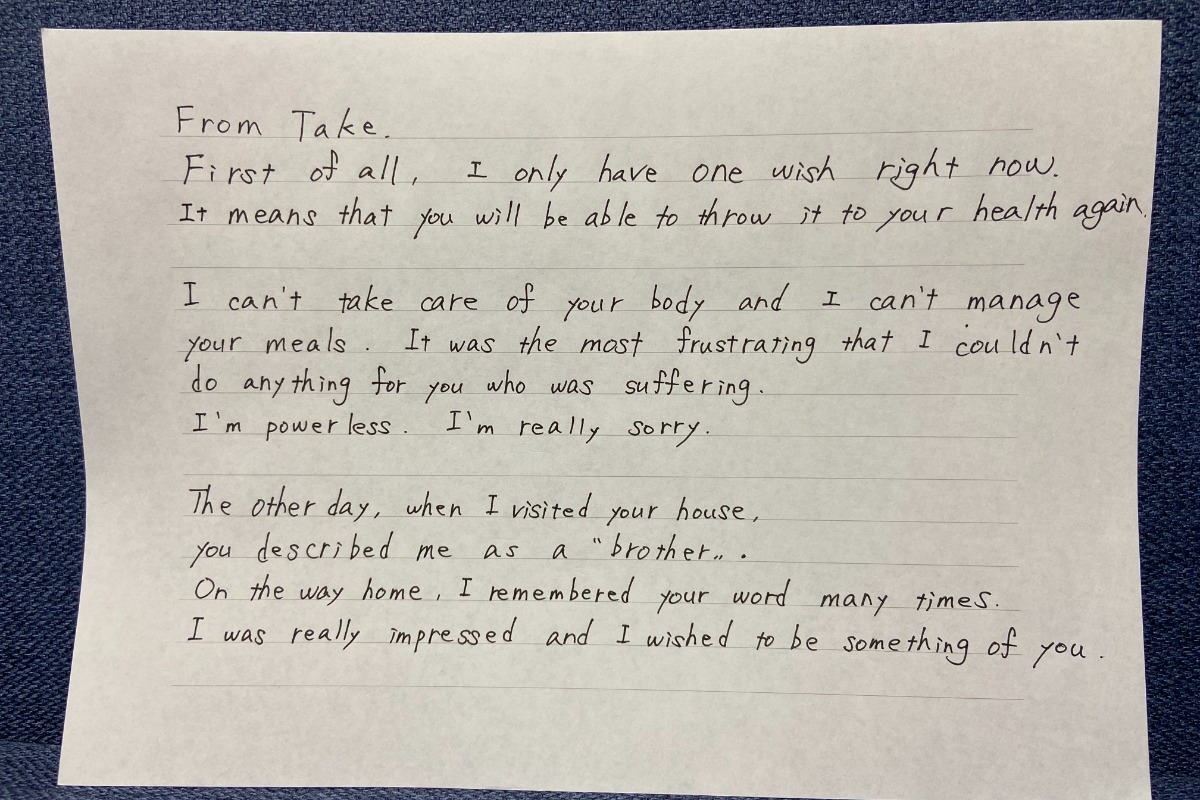 From Take.
First of all, I only have one wish right now.
It means that you will be able to throw it to your health again.
I can't take care of your body and I can't manage
your meals. It was the most frustrating that I couldn't
do anything for you who was suffering.
I'm powerless. I'm really sorry.
The other day, when I visited your house,
you described me as a "brother„.
On the way home, I remembered your word many times.
I was really impressed and I wished to be something of you.